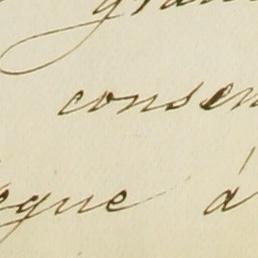 gran
consen
egue á